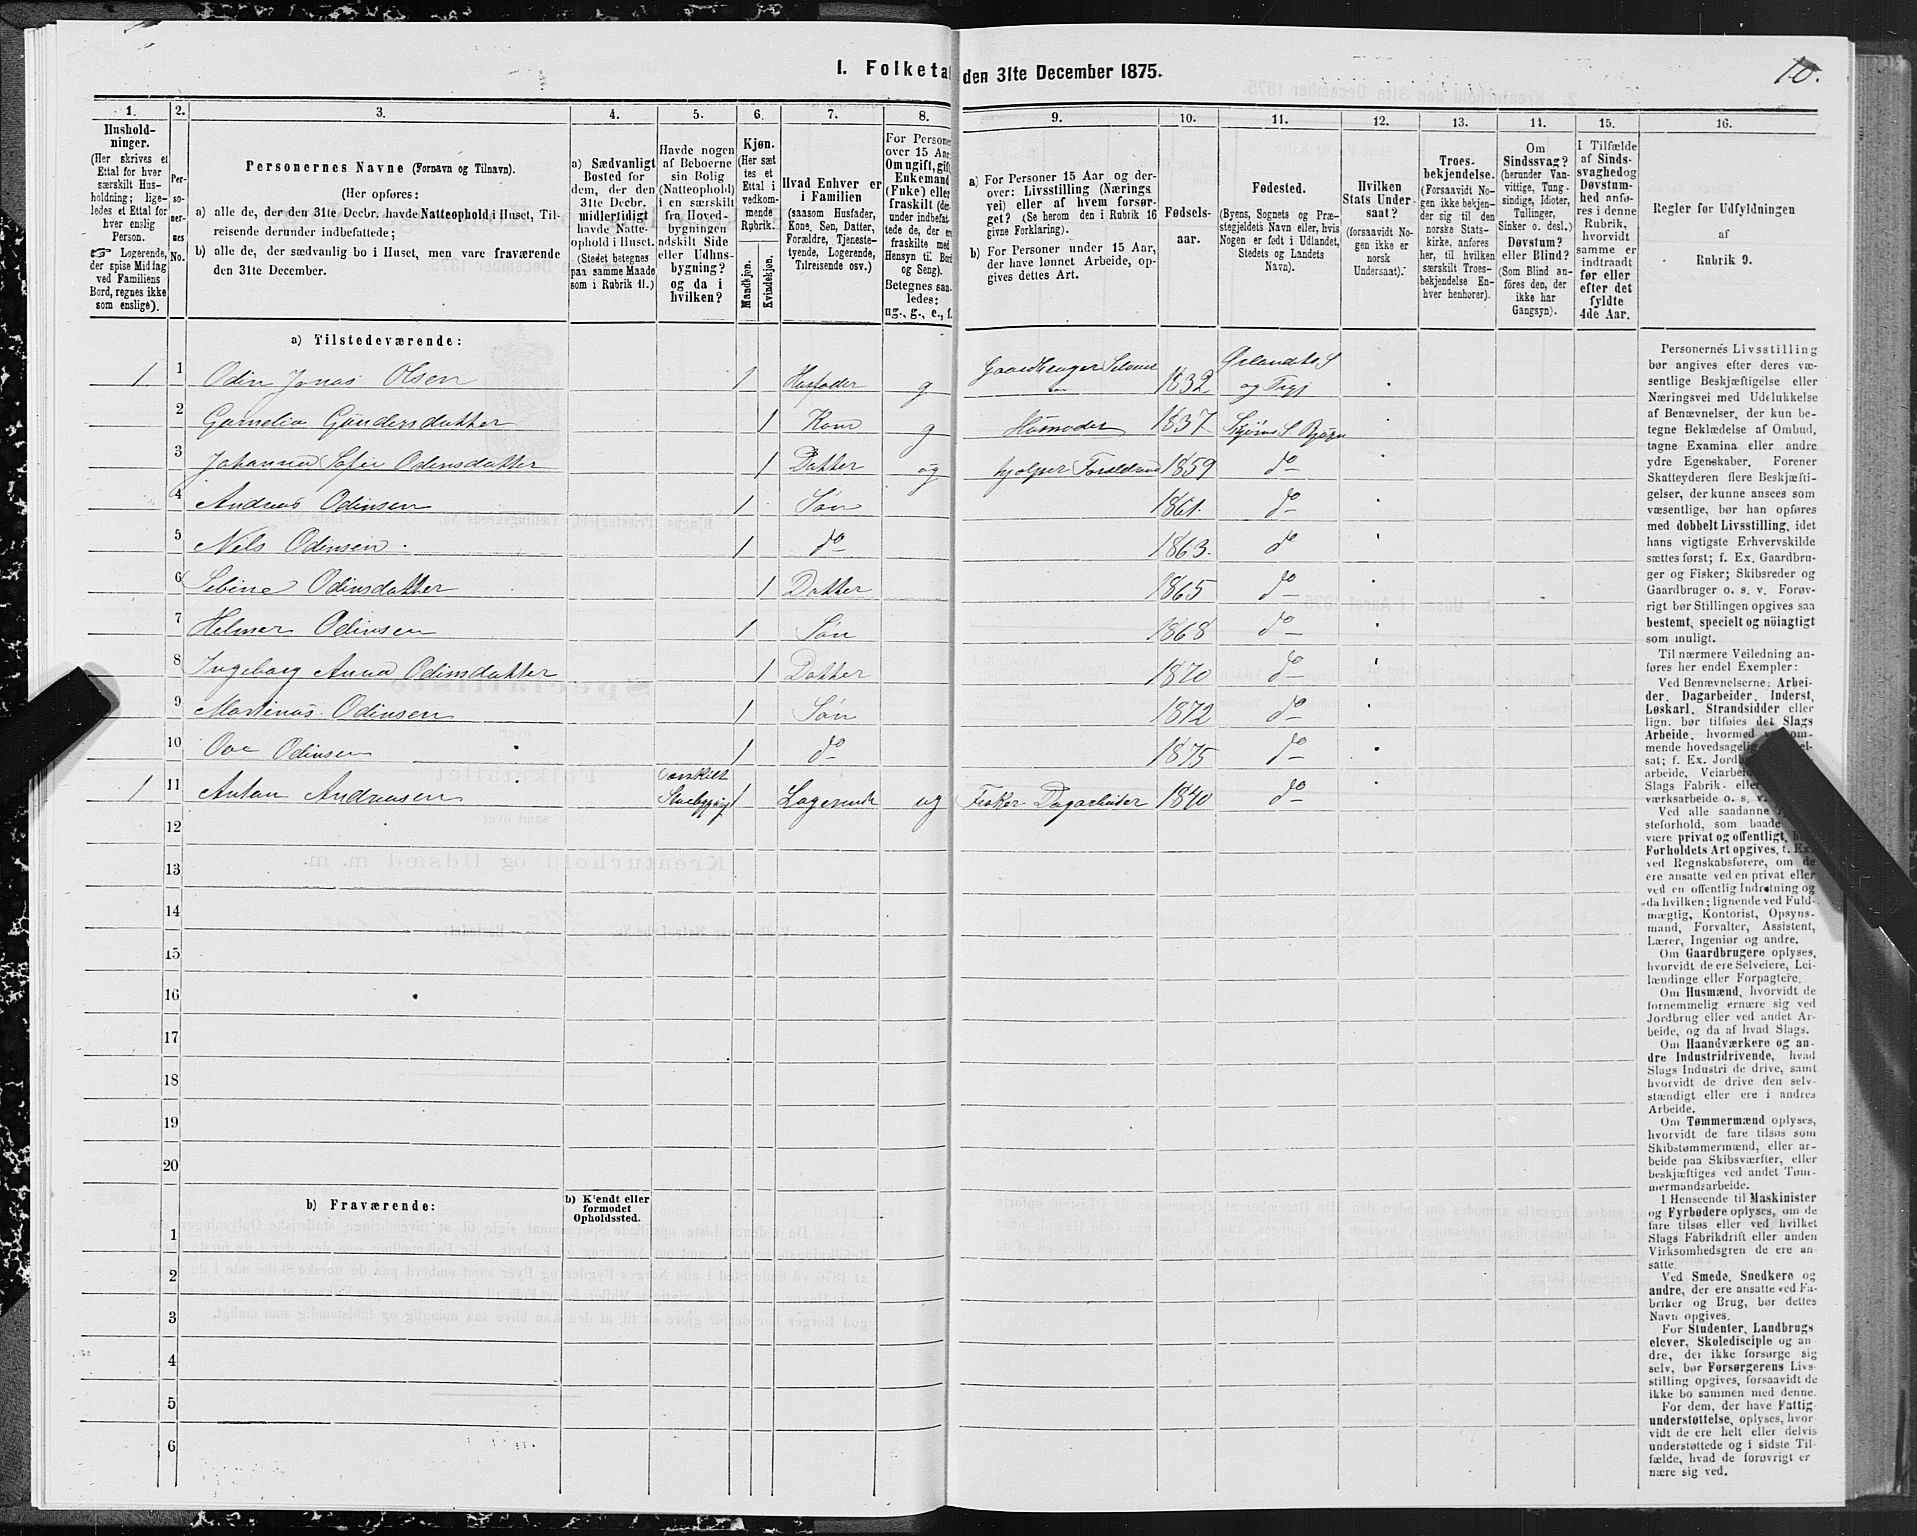 I. Folketal den 31te December 1875.
10.
1. 2. 3. 4. 5. 6. 7. 8. 9. 10. 11. 12. 13. 14. 15. 16.
Hushold-
ninger.
(Her skrives et
Ettal for hver
særskilt Hus-
holdning; lige-
ledes et Ettal for
hver enslig
Person.
☞ Logerende,
der spise Middag
ved Familiens
Bord, regnes ikke
som enslige).
Per-
so-
ner-
nes
No.
Personernes Navne (Fornavn og Tilnavn).
(Her opføres:
a) alle de, der den 31te Decbr. havde Natteophold i Huset, Til-
reisende derunder indbefattede;
b) alle de, der sædvanlig bo i Huset, men vare fraværende
den 31te December.
a) Sædvanligt
Bosted for
dem, der den
31te Decbr.
midlertidigt
havde Natte-
ophold i Huset.
(Stedet betegnes
paa samme Maade
som i Rubrik 11.)
Havde nogen
af Beboerne
sin Bolig
(Natteophold)
i en særskilt
fra Hoved-
bygningen
adskilt Side
eller Udhus-
bygning?
og da i
hvilken?
Kjøn.
(Her sæt-
tes et
Ettal i
vedkom-
mende
Rubrik.)
Mandkjøn.
Kvindekjøn.
Hvad Enhver er
i Familien
(saasom Husfader,
Kone, Søn, Datter,
Forældre, Tjeneste-
tyende, Logerende,
Tilreisende osv.)
For Personer
over 15 Aar:
Om ugift, gift,
Enkemand
(Enke) eller
fraskilt
Betegnes saa-
ledes:
ug., g., e., f.
a) For Personer 15 Aar og der-
over: Livsstilling (Nærings-
vei) eller af hvem forsør-
get? (Se herom den i Rubrik 16
givne Forklaring).
b) For Personer under 15 Aar,
der have lønnet Arbeide, op-
gives dettes Art.
Fødsels-
aar.
Fødested.
(Byens, Sognets og Præ-
stegjeldets Navn eller, hvis
Nogen er født i Udlandet,
Stedets og Landets
Navn).
Hvilken
Stats Under-
saat?
(forsaavidt No-
gen ikke er
norsk
Undersaat).
Troes-
bekjendelse.
(Forsaavidt No-
gen ikke bekjen-
der sig til den
norske Stats-
kirke, anføres
her, til hvilken
særskilt Troes-
bekjendelse En-
hver henhører).
Om
Sindssvag?
(herunder Van-
vittige, Tung-
sindige, Idioter,
Tullinger,
Sinker o. desl.)
Døvstum?
eller Blind?
(Som Blind an-
føres den, der
ikke har
Gangsyn).
I Tilfælde
af Sinds-
svaghed og
Døvstum-
hed anfø-
res i denne
Rubrik,
hvorvidt
samme er
indtraadt
før eller
efter det
fyldte
4de Aar.
Regler for Udfyldningen
af
Rubrik 9.
a) Tilstedeværende:
1 1 Odin Jonas Olsen 1 Husfader g Gaardbruger Seleier 1832 Ørlandets S
og Prgj
2 Gurnelia Gundersdatter 1 Kone g Husmoder 1837 Skjørns S Bjugn
3 Johanna Sofie Odinsdatter 1 Datter ug hjelper Forældrene 1859 do
4 Andreas Odinsen 1 Søn 1861. do
5 Nels Odinsen 1 do 1863. do
6 Sebine Odinsdatter 1 Datter 1865 do
7 Helmer Odinsen 1 Søn 1868 do
8 Ingeborg Anna Odinsdatter 1 Datter 1870 do
9 Martinus Odinsen 1 Søn 1872 do
10 Ove Odinsen 1 do 1875 do
1 11 Anton Andreasen 1 Logerende ug Fisker Dagarbeider 1840 do
12
13
14
15
16
17
18
19
20
b) Fraværende:
b) Kjendt eller
formodet
Opholdssted.
1
2
3
4
5
6
Personernes Livsstilling
bør angives efter deres væ-
sentlige Beskjæftigelse eller
Næringsvei med Udelukkelse
af Benævnelser, der kun be-
tegne Beklædelse af Ombud,
tagne Examina eller andre
ydre Egenskaber. Forener
Skatteyderen flere Beskjæfti-
gelser, der kunne ansees som
væsentlige, bør han opføres
med dobbelt Livsstilling, idet
hans vigtigste Erhvervskilde
sættes først; f. Ex. Gaardbru-
ger og Fisker; Skibsreder og
Gaardbruger o. s. v. Forøv-
rigt bør Stillingen opgives saa
bestemt, specielt og nøiagtigt
som muligt.
Til nærmere Veiledning an-
føres her endel Exempler:
Ved Benævnelserne: Arbei-
der, Dagarbeider, Inderst,
Løskarl, Strandsidder eller
lign. bør tilføies det Slags
Arbeide, hvormed
mende hovedsagelig
sat; f. Ex.
arbeide,
Slags Fabrik-
værksarbeide o. s. v.
Ved alle saadanne
steforhold, som baade
være privat og offentligt,
Forholdets Art opgives, f. Ex.
ved Regnskabsførere, om de
ere ansatte ved en privat eller
ved en offentlig Indretning og
da hvilken; lignende ved Fuld-
mægtig, Kontorist, Opsyns-
mand, Forvalter, Assistent,
Lærer, Ingeniør og andre.
Om Gaardbrugere oplyses,
hvorvidt de ere Selveiere, Lei-
lændinge eller Forpagtere.
Om Husmænd, hvorvidt de
fornemmelig ernære sig ved
Jordbrug eller ved andet Ar-
beide, og da af hvad Slags.
Om Haandværkere og an-
dre Industridrivende, hvad
Slags Industri de drive, samt
hvorvidt de drive den selv-
stændigt eller ere i andres
Arbeide.
Om Tømmermænd oplyses,
hvorvidt de fare tilsøs som
Skibstømmermænd, eller ar-
beide paa Skibsværfter, eller
beskjæftiges ved andet Tøm-
mermandsarbeide.
I Henseende til Maskinister
og Fyrbødere oplyses, om de
fare tilsøs eller ved hvilket
Slags Fabrikdrift eller anden
Virksomhedsgren de ere an-
satte.
Ved Smede, Snedkere og
andre, der ere ansatte ved Fa-
briker og Brug, bør dettes
Navn opgives.
For Studenter, Landbrugs-
elever, Skoledisciple og an-
dre, der ikke forsørge sig
selv, bør Forsørgerens Livs-
stilling opgives, forsaavidt de
ikke bo sammen med denne.
For dem, der have Fattig-
understøttelse, oplyses, hvor-
vidt de ere helt eller delvis
understøttede og i sidste Til-
fælde, hvad de forøvrigt er-
nære sig ved.